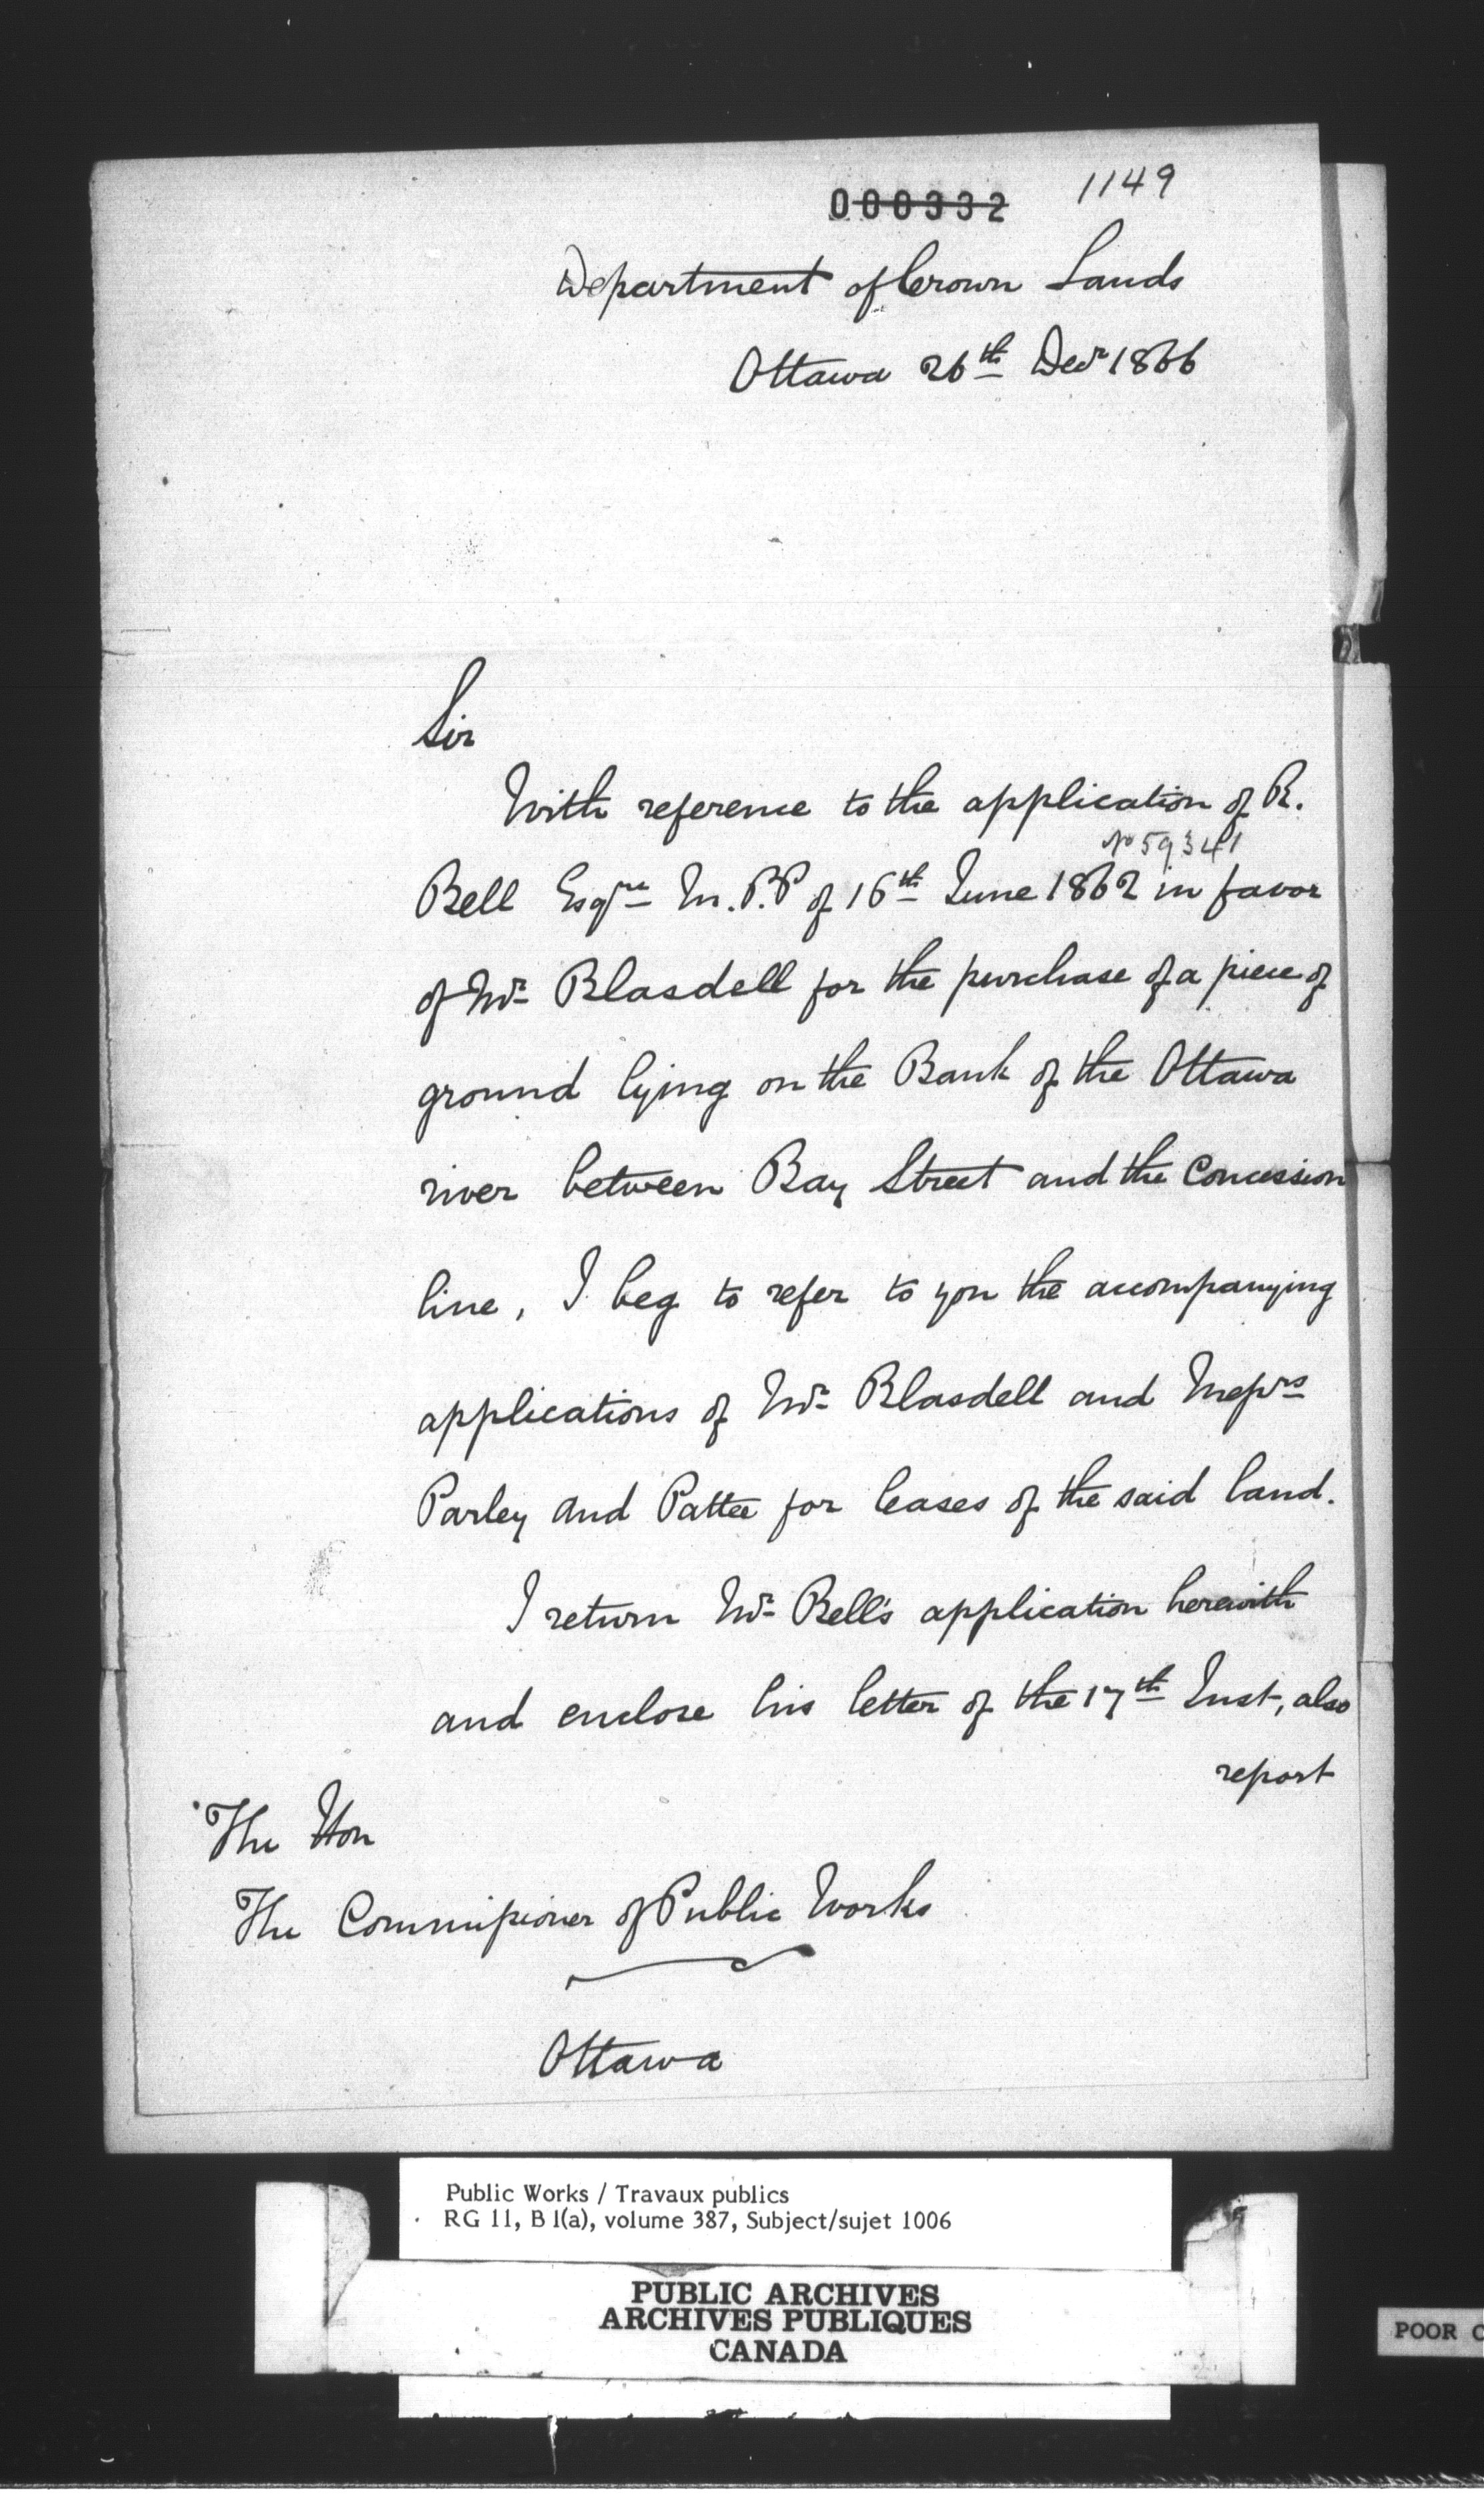 000332 1149
Department of Crown Lands
Ottawa 26th Decr 1866
Sir
With reference to the application of R.
No 59341
Bell Esqre M.P.P of 16th June 1862 in favor
of Mr Blasdell for the purchase of a piece of
ground lying on the Bank of the Ottawa
river between Bay Street and the Concession
line, I beg to refer to you the accompanying
applications of Mr Blasdell and Messrs
Parley and Pattee for leases of the said land.
I return Mr Bell's application herewith
and enclose his letter of the 17th Inst, also
report
The Hon
The Commissioner of Public Works
Ottawa
Public Works / Travaux publics
RG 11, B 1(a), volume 387, Subject/sujet 1006
PUBLIC ARCHIVES
ARCHIVES PUBLIQUES
CANADA
POOR